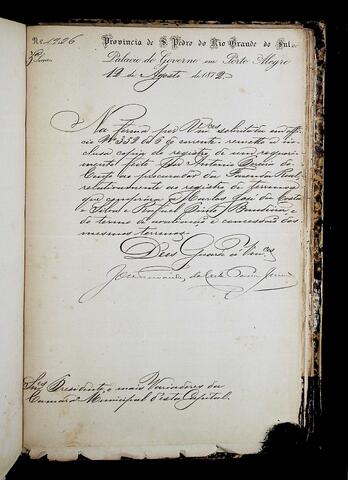 Nº 1226
Provincia de S. Pedro do Rio Grande do Sul.
Palacio do Governo em Porto Alegre
12 de Agosto de 1872
Na forma por Vmces solicitada em offi-
cio Nº 352 de 6 do corrente, remetto a in-
clusa copia do registro de um requeri-
mento feito José Antonio
ao procurador da Fazenda Real,
relativamente ao registro de terrenos
que comprára a Carlos José da Costa
e Silva e Rafael Pinto Bandeira, e
do termo de
mesmos terrenos.
Deus Guarde a Vmces
José Fernandes da Costa Pereira Junior
Snres Presidente e mais Vereadores da
Camara Municipal d'esta Capital.